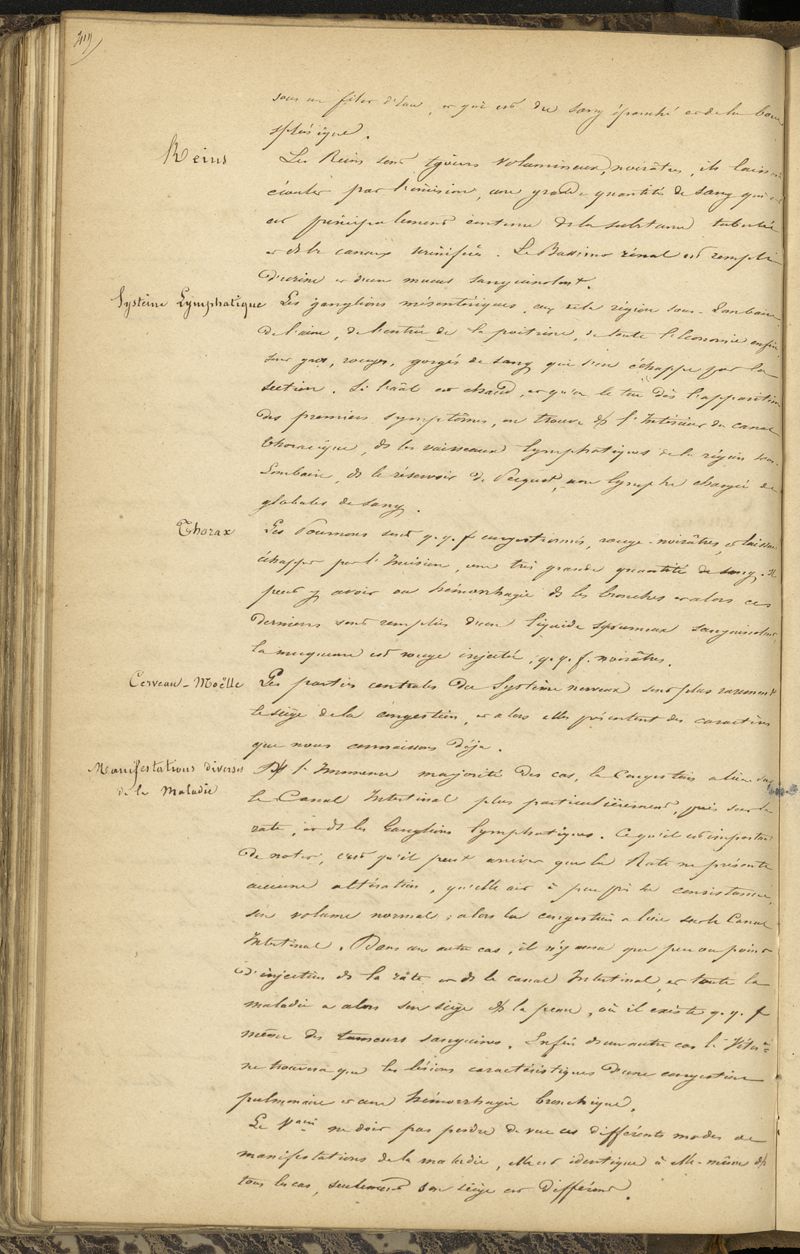 sous un filet d'eau, et qui est du sang épanché et de la boue
splénique.
Reins
Les Reins sont tjours volumineux, noirâtres, ils laissent
écouler par l'incision, une grande quantité de sang qui
est principalement contenue ds la substance tubulée
et ds les canaux urinifères. Le Bassinet rénal est rempli
d'urine et d'un mucus sanguinolent.
Système Lymphatique
Les ganglions mésentériques, ceux de la région sous-lombaire,
de l'aine, de l'entrée de la poitrine, de toute l'économie enfin,
sont gros, rouges, gorgés de sang qui s'en échappe par la
section. Si l'aal est chaud, et qu'on le tue dès l'apparition
des premiers symptômes, on trouve ds l'Intérieur du canal
thoracique, ds les vaisseaux lymphatiques de la région sous-
lombaire, ds le réservoir de Pecquet, une lymphe chargée de
globules de sang.
Thorax
Les Poumons sont q.q.f. congestionnés, rouge-noirâtres, et laissent
échapper par l'Incision, une très grande quantité de sang. Il
peut y avoir eu hémorrhagie ds les bronches et alors ces
derniers sont remplies d'un liquide spumeux sanguinolent,
la muqueuse est rouge injectée, q.q.f. noirâtre.
Cerveau - Moëlle
Les parties centrales du Système nerveux sont plus rarement
le siège de la congestion, et alors elles présentent des caractères
que nous connaissons déjà.
Manifestations diverses
de la Maladie
Ds l'Immense majorité des cas, la Congestion a lieu sur
le Canal Intestinal plus particulièrement, puis sur la
rate, et ds les Ganglions lymphatiques. Ce qu'il est important
de noter, c'est qu'il peut arriver que la Rate ne présente
aucune altération, qu'elle ait à peu près la consistance,
son volume normal; alors la congestion a lieu sur le Canal
Intestinal. Dans un autre cas, il n'y aura que peu ou point
d'injection ds la râte et ds le canal Intestinal, et toute la
maladie a alors son siège ds la peau, où il existe q.q.f
même des tumeurs sanguines. Enfin ds un autre cas l'
ne trouvera que les lésions caractéristiques d'une congestion
pulmonaire et une hémorrhagie bronchique.
Le ne doit pas perdre de vue ces différents modes de
manifestations de la maladie, elle est identique à elle-même ds
tous les cas, seulement son siège est différent.